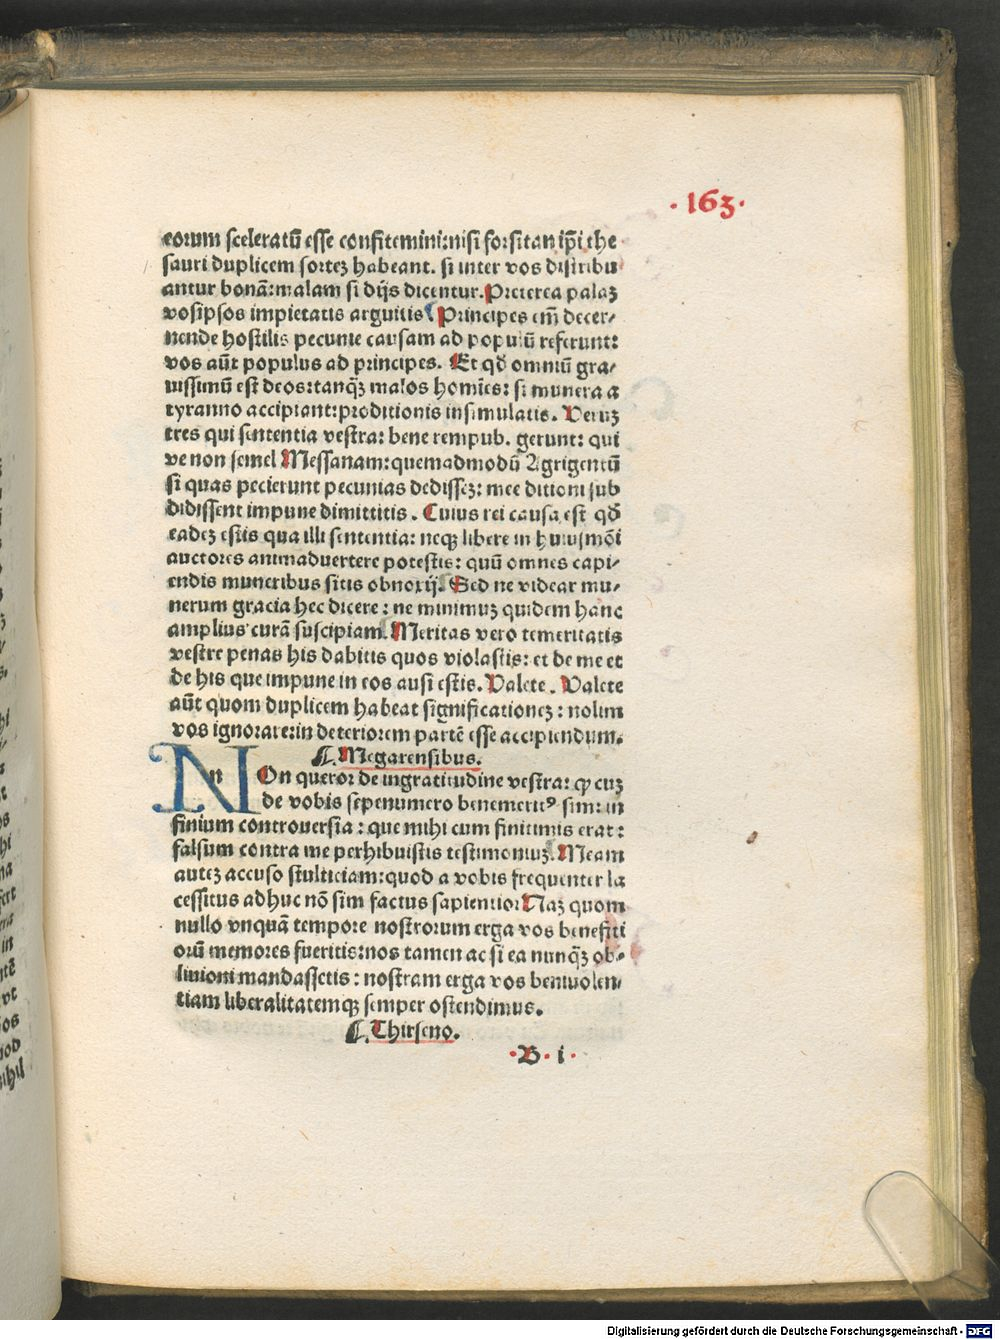 · 163 ·
eorum sceleratū esse confitemini: nisi forsitan ip̄i the
sauri duplicem sorteʒ habeant. si inter vos distribu
antur bonā: malam si dijs dicentur. Preterea palaʒ
vosipsos impietatis arguitis Principes em̄ decer/
nende hostilis pecunie causam ad populū referunt:
vos aūt populus ad principes. Et qd̄ omniū gra/
uissimū est deos: tanqʒ malos homīes: si munera a
tyranno accipiant: proditionis insimulatis. Veruʒ
tres qui sententia vestra: bene rempub. gerunt: qui
ve non semel Messanam: quemadmodū Agrigentū
si quas pecierunt pecunias dedisseʒ: mee ditioni sub
didissent impune dimittitis. Cuius rei causa est qd̄
eadeʒ estis qua illi sententia: neqʒ libere in huiusmōi
auctores animaduertere potestis: quū omnes capi/
endis muneribus sitis obnoxij. Sed ne videar mu/
nerum gracia hec dicere: ne minimuʒ quidem hanc
amplius curā suscipiam. Meritas vero temeritatis
vestre penas his dabitis quos violastis: et de me et
de his que impune in eos ausi estis. Valete. Valete
aūt quom duplicem habeat significationeʒ: nolim
vos ignorare: in deteriorem partē esse accipiendum.
¶. Megarensibus.
N n On queror de ingratitudine vestra: ꝙ cuʒ
de vobis sepenumero benemeritꝰ sim: in
finium controuersia: que mihi cum finitimis erat:
falsum contra me perhibuistis testimoniuʒ. Meam
auteʒ accuso stulticiam: quod a vobis frequenter la
cessitus adhuc nō sim factus sapientior Naʒ quom
nullo vnquā tempore nostrorum erga vos benefiti
orū memores fueritis: nos tamen ac si ea nunqʒ ob/
liuioni mandassetis: nostram erga vos beniuolen/
tiam liberalitatemqʒ semper ostendimus.
¶. Thirseno.
· B · i ·
Digitalisierung gefördert durch die Deutsche Forschungsgemeinschaft - DFG